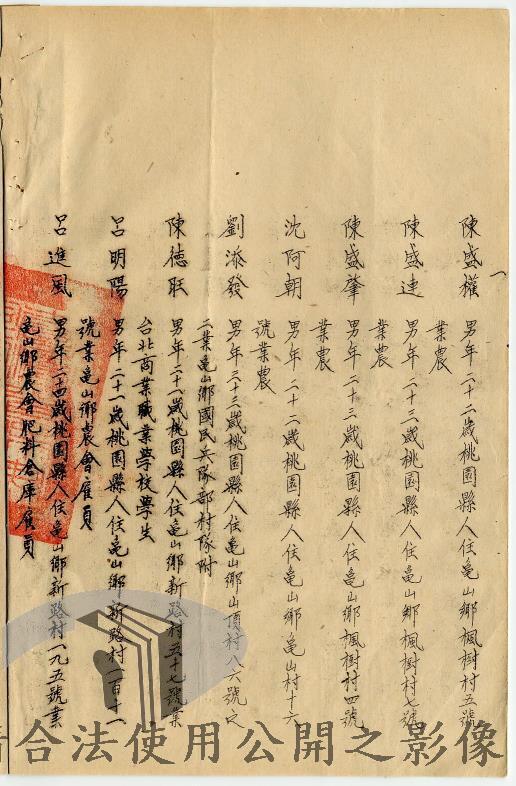 陳盛權 男年二十二歲桃園縣人住龜山鄉楓樹村五號
業農
陳盛連 男年二十三歲桃園縣人住龜山鄉楓樹村七號
業農
陳盛肇 男年二十三歲桃園縣人住龜山鄉楓樹村四號
業農
沈阿朝 男年二十二歲桃園縣人住龜山鄉龜山村十六
號業農
劉添發 男年三十三歲桃園縣人住龜山鄉山頂村八六號之
二業龜山鄉國民兵隊部村隊附
陳德旺 男年二十八歲桃園縣人住龜山鄉新路村五十七號業
台北商業職業學校學生
呂明陽 男年二十一歲桃園縣人住龜山鄉新路村一百十一
號業龜山鄉農會雇員
呂進風 男年二十四歲桃園縣人住龜山鄉新路村一九五號業
龜山鄉農會肥料倉庫雇員
合法使用公開之影像